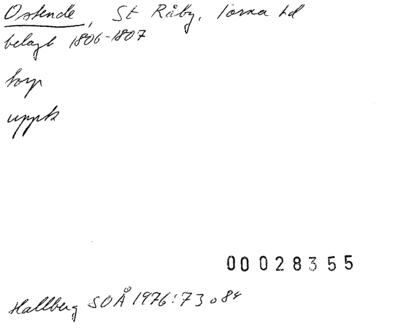 Ostende, St Råby, Torna hd
belagt 1806-1807
torp
uppk
00028355
Hallberg SOÅ 1976:73 o 84